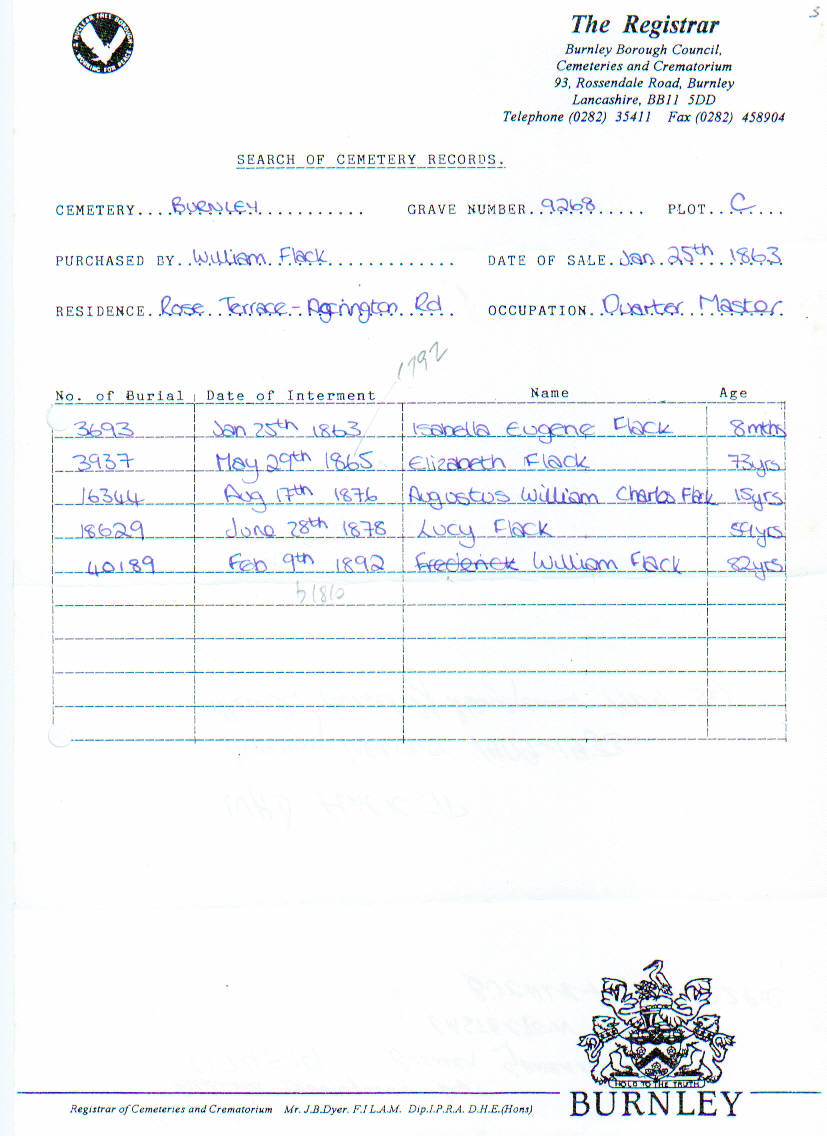 3
NUCLEAR FREE BOROUGH WORKING FOR PEACE
The Registrar
Burnley Borough Council,
Cemeteries and Crematorium
93, Rossendale Road, Burnley
Lancashire, BB11 5DD
Telephone (0282) 35411 Fax (0282) 458904
SEARCH OF CEMETERY RECORDS.
CEMETERY....BURNLEY........... GRAVE NUMBER..9268..... PLOT..C....
PURCHASED BY..William Flack............. DATE OF SALE.Jan 25th 1863
RESIDENCE.Rose Terrace - Accrington Rd. OCCUPATION..Quarter Master.
1792
No. of Burial Date of Interment Name Age
3693 Jan 25th 1863 Isabella Eugene Flack 8mths
3937 May 29th 1865 Elizabeth Flack 73yrs
16344 Aug 17th 1876 Augustus William Charles Flack 15yrs
18629 June 28th 1878 Lucy Flack 59yrs
40189 Feb 9th 1892 Frederick William Flack 82yrs
b1810
HOLD TO THE TRUTH
BURNLEY
Registrar of Cemeteries and Crematorium Mr. J.B.Dyer. F.I L.A.M. Dip.I.P.R.A. D.H.E.(Hons)